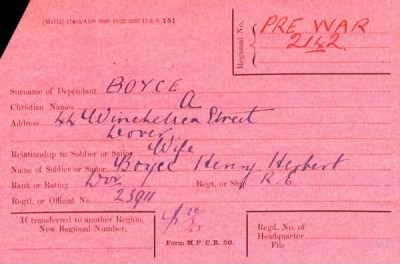 PRE WAR
Regional No. 2142.
Surname of Dependant BOYCE
Christian Names A
Address 44 Winchelsea Street
Dover
Relationship to Soldier or Sailor Wife
Name of Soldier or Sailor Boyce Henry Herbert
Rank or Rating Dvr Regt. or Ship R.E.
Regtl. or Official No. 23911
If transferred to another Region,
New Regional Number.
Form M.P.C.R. 50.
Regd. No. of
Headquarter
File